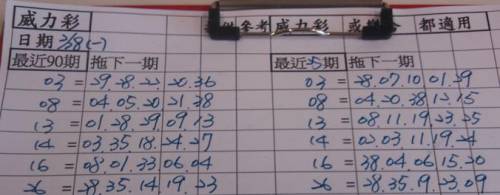 威力彩 參考 威力彩 都適用
日期 2/28(一)
最近90期 拖下一期 最近25期 拖下一期
03 = 29.28.22.20.36 03 = 28.07.10.01.29
08 = 04.05.20.21.38 08 = 04.20.38.12.15
13 = 01.28.29.09.13 13 = 08.11.19.23.25
14 = 03.35.18.24.27 14 = 02.03.11.19.24
16 = 08.01.33.06.04 16 = 38.04.06.15.20
26 = 28.35.14.19.23 26 = 28.35.9.23.09